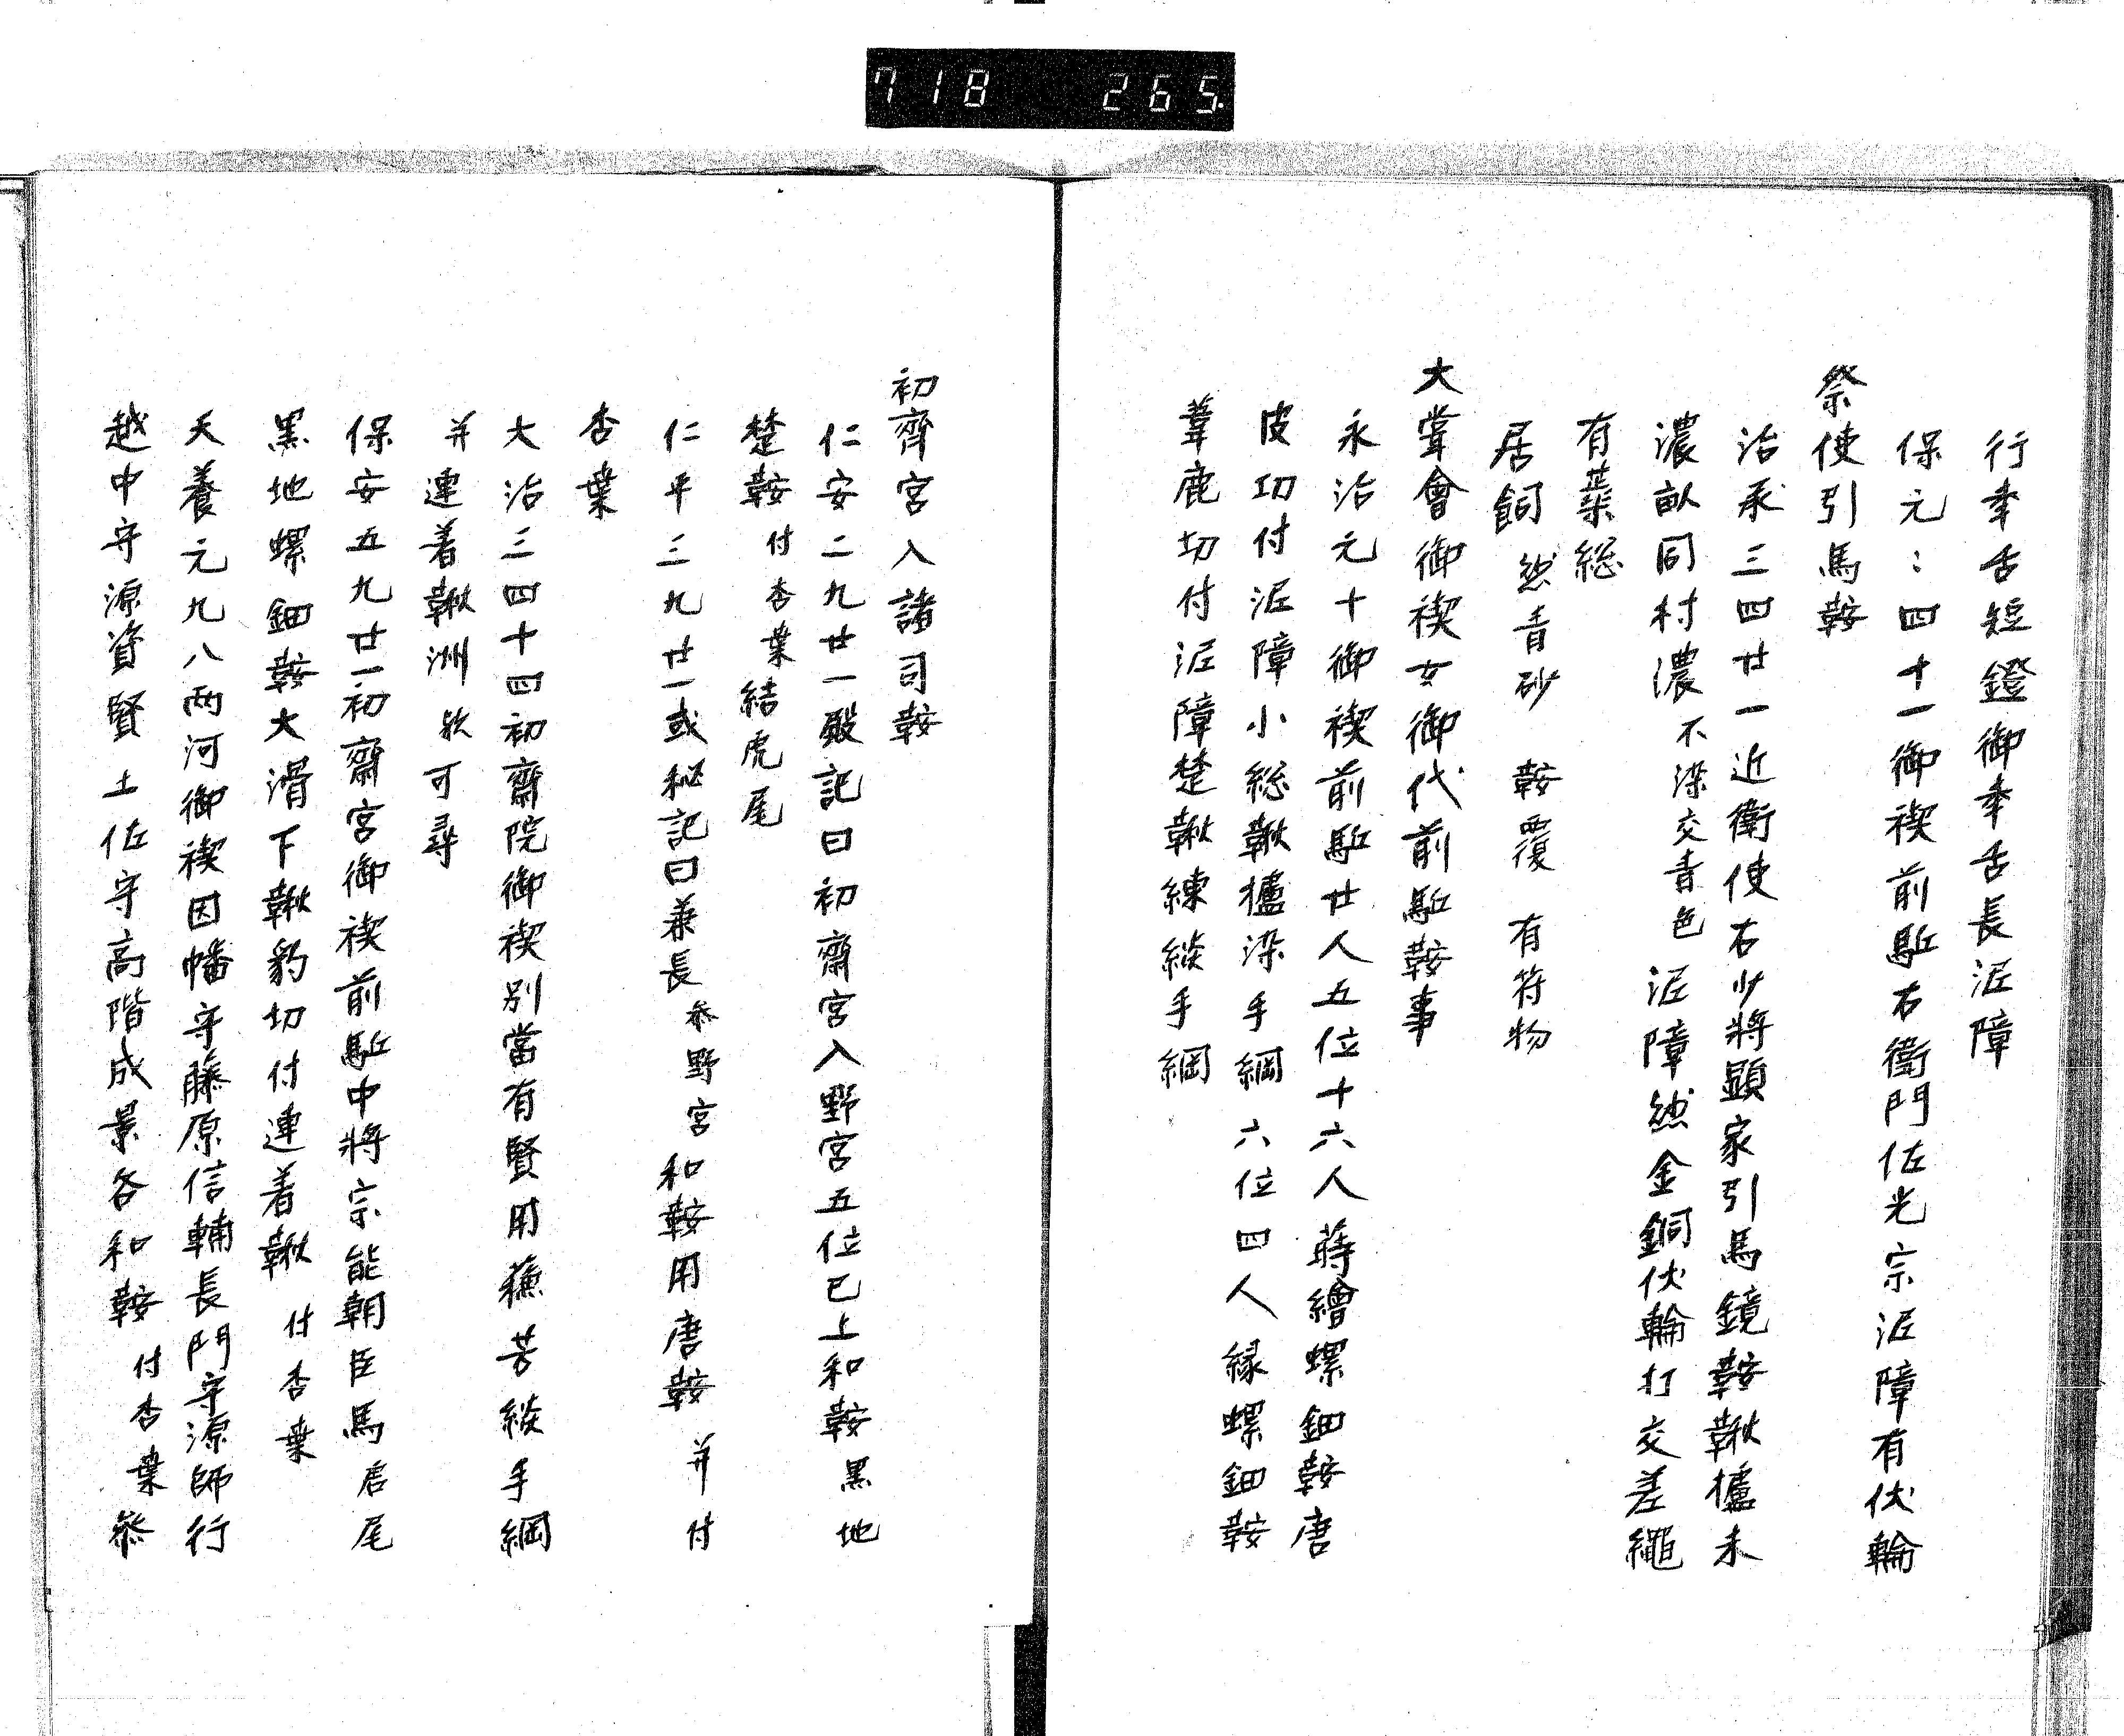 718 265
行幸舌短鐙御幸舌長泥障
保元〻四十一御禊前駈右衛門佐光宗泥障有伏輪
祭使引馬鞍
治承三四廿一近衛使右少将顕家引馬鏡鞍鞦櫨末
濃畝同村濃 不染交青色 泥障然金銅伏輪打交差繩
有蘂総
居飼 然青砂 鞍覆 有符物
大嘗會御禊女御代前駈鞍事
永治元十御禊前駈廿人五位十六人蒔繪螺鈿鞍唐
皮切付泥障小総鞦櫨染手綱六位四人縁螺鈿鞍
葦鹿切付泥障楚鞦練緂手綱
初齊宮入諸司鞍
仁安二九廿一殿記曰初齋宮入野宮五位已上和鞍 黒地
楚鞍 付杏葉 結虎尾
仁平三九廿一或秘記曰兼長 参野宮 和鞍用唐鞍 并付
杏葉
大治三四十四初齋院御禊別當有賢用蘓芳緂手綱
并連着鞦洲 欤可尋
保安五九廿一初齋宮御禊前駈中将宗能朝臣馬 居尾
黒地螺鈿鞍大滑下鞦豹切付連着鞦 付杏葉
天養元九八両河御禊因幡守藤原信輔長門守源師行
越中守源資賢土佐守高階成景各和鞍 付杏葉 参